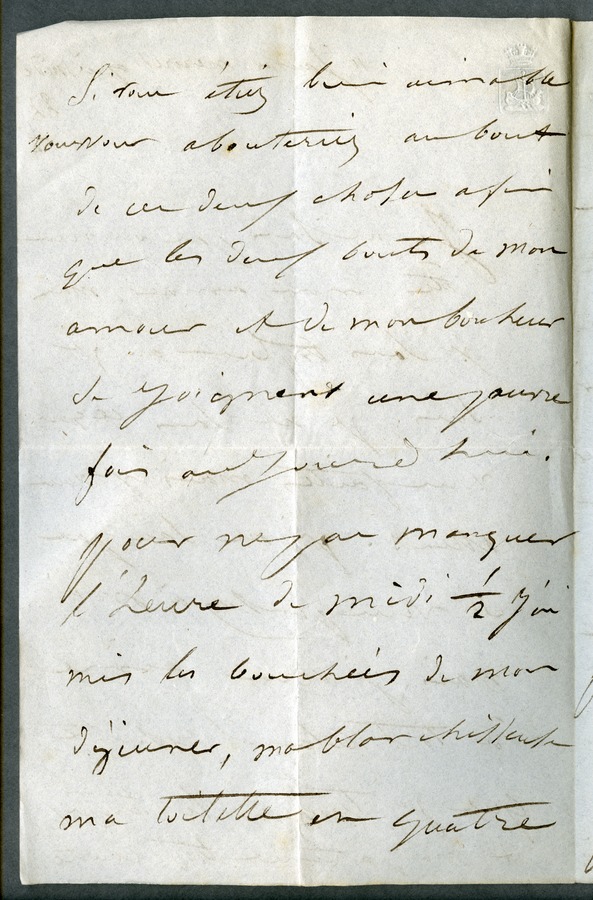 Si vous étiez bien aimable
vous vous abouteriez au bout
de ces deux choses afin
que les deux bouts de mon
amour et de mon bonheur
se joignent une pauvre
fois aujourd'hui.
pour ne pas manquer
l'heure de midi ½ j'ai
mis les bouchées de mon
déjeuner, ma blanchisseuse
ma toilette en quatre